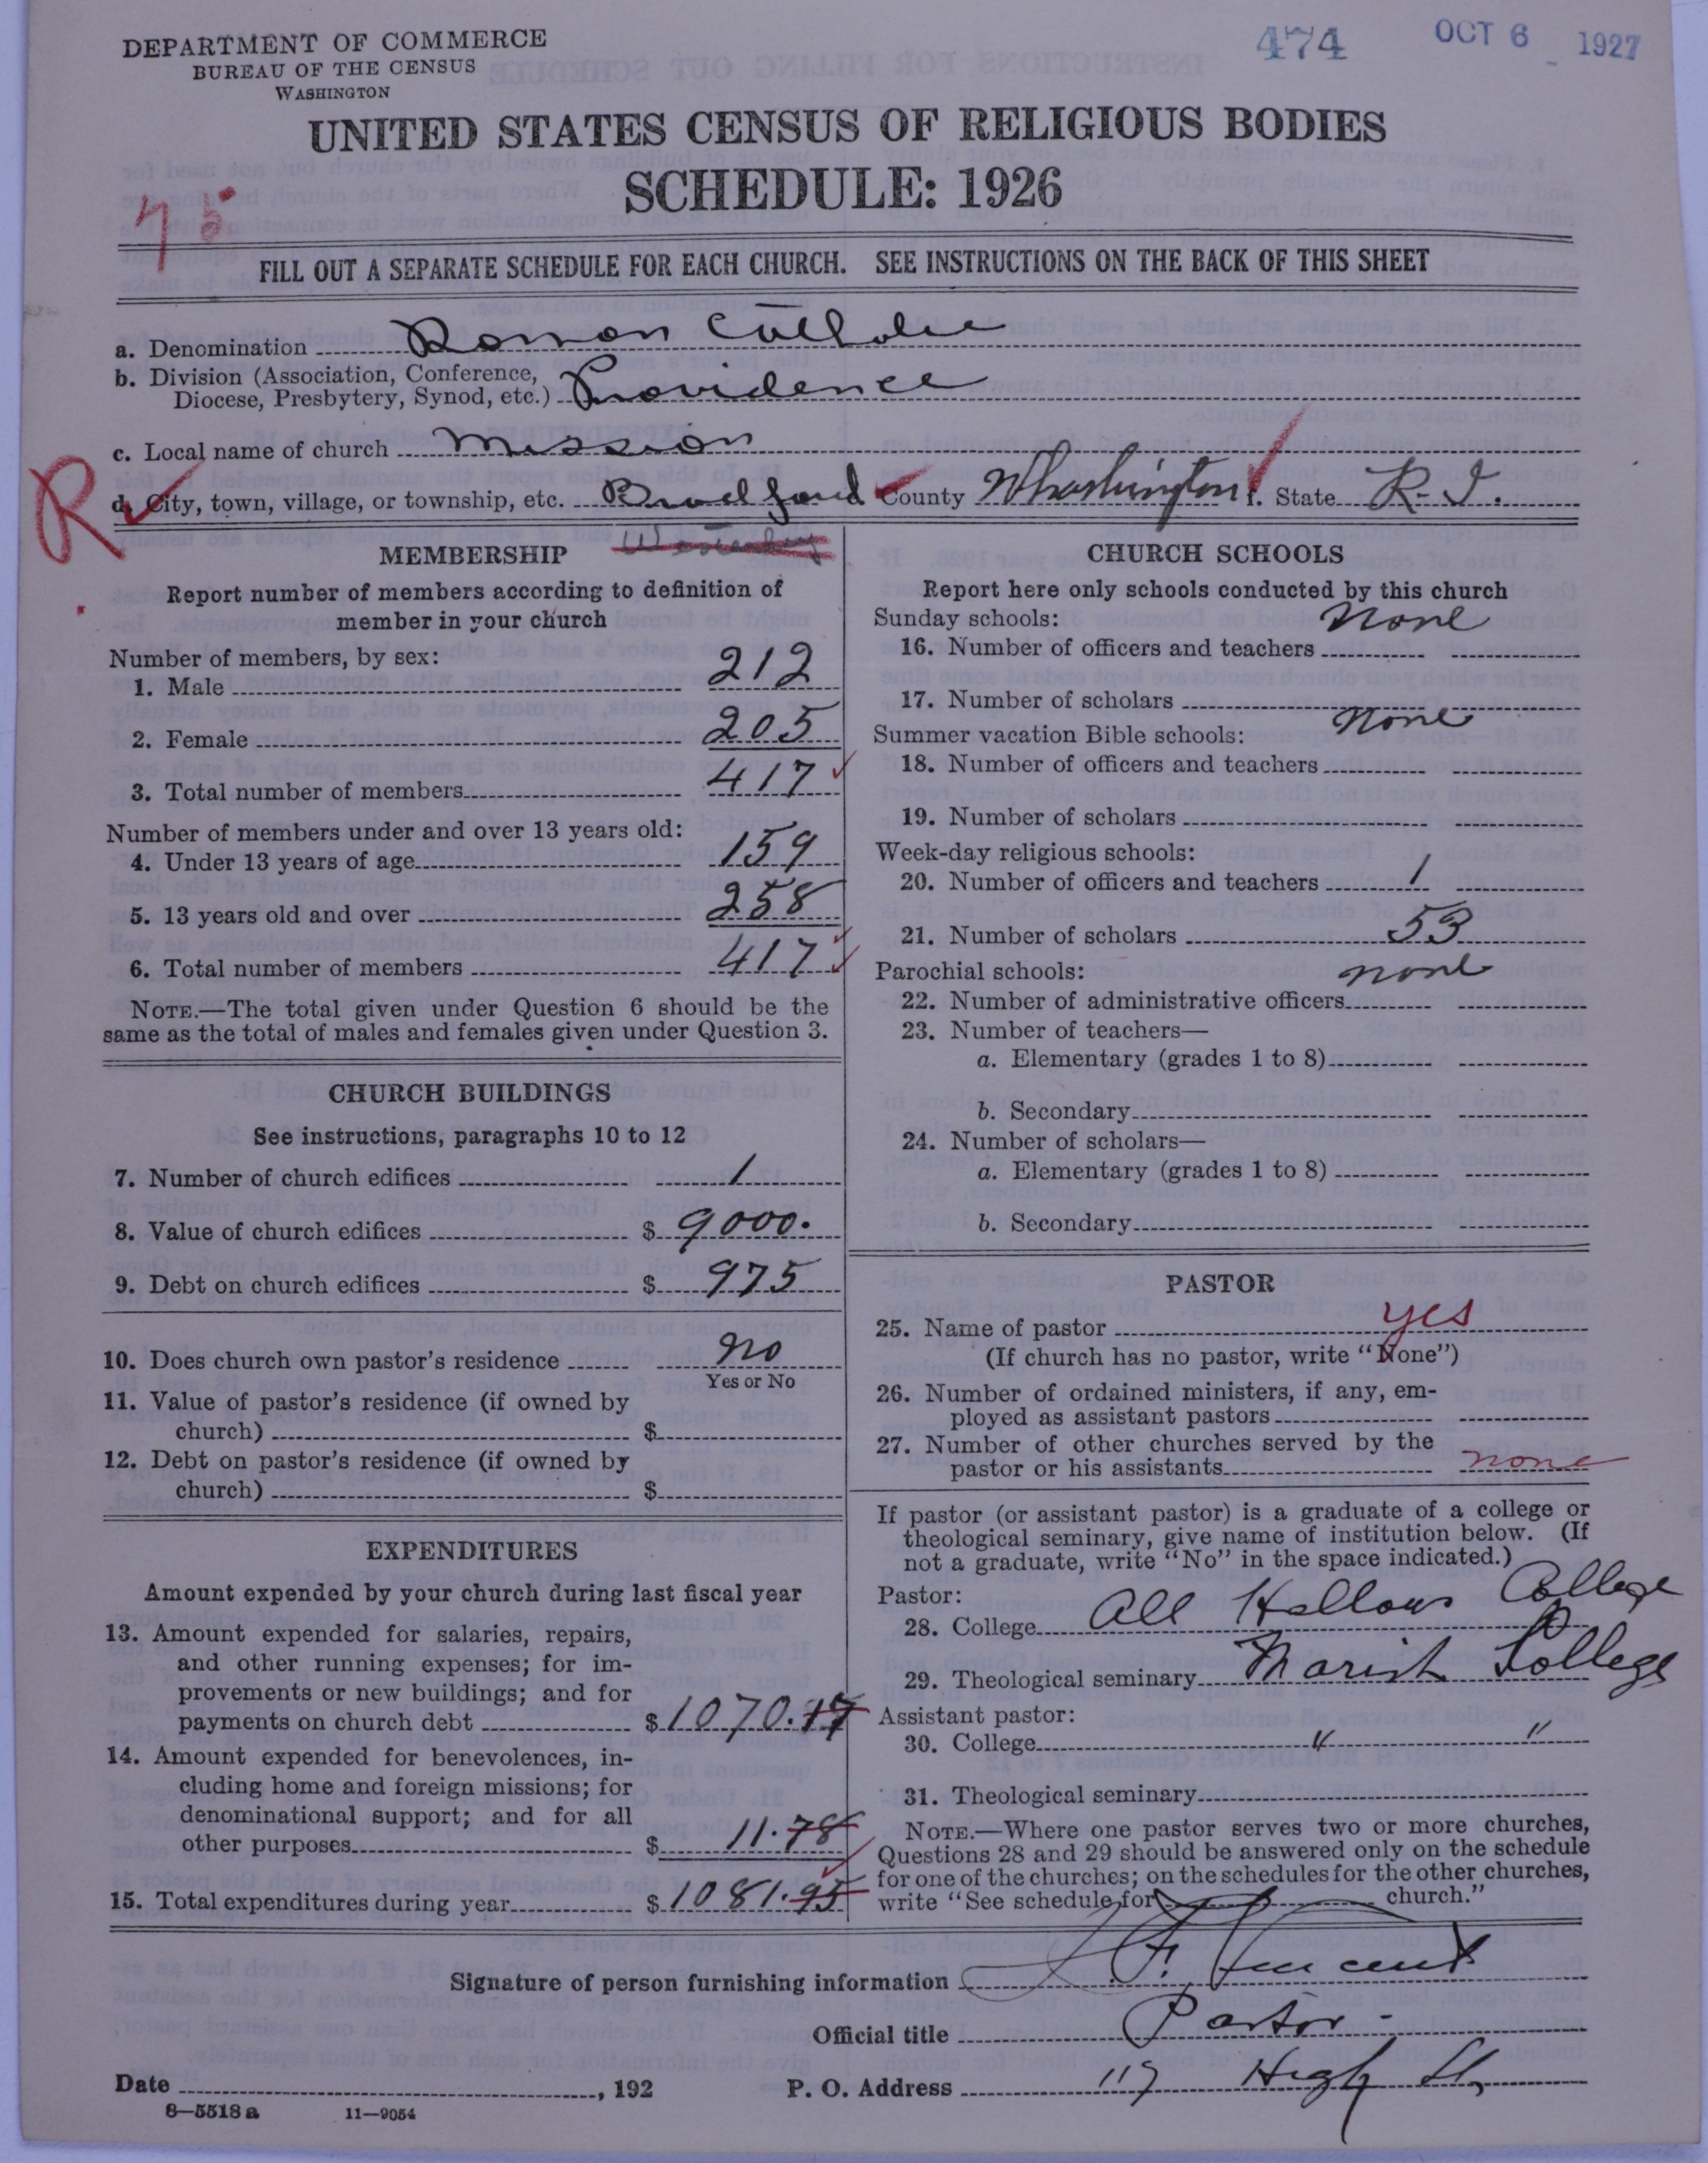 DEPARTMENT OF COMMERCE
BUREAU OF THE CENSUS
WASHINGTON
474 OCT 6 1927
UNITED STATES CENSUS OF RELIGIOUS BODIES
SCHEDULE: 1926
75
FILL OUT A SEPARATE SCHEDULE FOR EACH CHURCH. SEE INSTRUCTIONS ON THE BACK OF THIS SHEET
a. Denomination Roman Catholic
b. Division (Association, Conference,
Diocese, Presbytery, Synod, etc.) Providence
c. Local name of church Mission
R
d. City, town, village, or township, etc. Bradford County Washington f. State R. I.
Westerly
MEMBERSHIP
Report number of members according to definition of
member in your church
Number of members, by sex:
1. Male 212
2. Female 205
3. Total number of members 417
Number of members under and over 13 years old:
4. Under 13 years of age 159
5. 13 years old and over 258
6. Total number of members 417
NOTE.—The total given under Question 6 should be the
same as the total of males and females given under Question 3.
CHURCH BUILDINGS
See instructions, paragraphs 10 to 12
7. Number of church edifices 1
8. Value of church edifices $ 9000.
9. Debt on church edifices $ 975
10. Does church own pastor's residence No
Yes or No
11. Value of pastor's residence (if owned by
church) $
12. Debt on pastor's residence (if owned by
church) $
EXPENDITURES
Amount expended by your church during last fiscal year
13. Amount expended for salaries, repairs,
and other running expenses; for im-
provements or new buildings; and for
payments on church debt $ 1070.17
14. Amount expended for benevolences, in-
cluding home and foreign missions; for
denominational support; and for all
other purposes $ 11.78
15. Total expenditures during year $ 1081.95
CHURCH SCHOOLS
Report here only schools conducted by this church
Sunday schools: None
16. Number of officers and teachers
17. Number of scholars
Summer vacation Bible schools: None
18. Number of officers and teachers
19. Number of scholars
Week-day religious schools:
20. Number of officers and teachers 1
21. Number of scholars 53
Parochial schools: None
22. Number of administrative officers
23. Number of teachers—
a. Elementary (grades 1 to 8)
b. Secondary
24. Number of scholars—
a. Elementary (grades 1 to 8)
b. Secondary
PASTOR
25. Name of pastor yes
(If church has no pastor, write "None")
26. Number of ordained ministers, if any, em-
ployed as assistant pastors
27. Number of other churches served by the
pastor or his assistants none
If pastor (or assistant pastor) is a graduate of a college or
theological seminary, give name of institution below. (If
not a graduate, write "No" in the space indicated.)
Pastor:
28. College All Hallows College
29. Theological seminary Marist College
Assistant pastor:
30. College " "
31. Theological seminary
NOTE.—Where one pastor serves two or more churches,
Questions 28 and 29 should be answered only on the schedule
for one of the churches; on the schedules for the other churches,
write "See schedule for church."
Signature of person furnishing information F. Vincent
Official title Pastor
Date , 192 P. O. Address 117 High St,
8—5518 a 11—9054